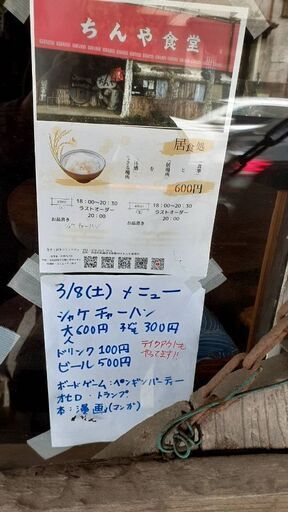 ちんや食堂
居食処
600円
18:00〜20:30
ラストオーダー
20:00
お品書き
18:00〜20:30
ラストオーダー
20:00
お品書き
3/8(土) メニュー
シャケ チャーハン
大人600円 子ども300円
ドリンク100円
ビール500円
テイクアウトも
やってます!!
ボードゲーム:ペンギンパーティー
オセロ・トランプ
本:漫画(マンガ)